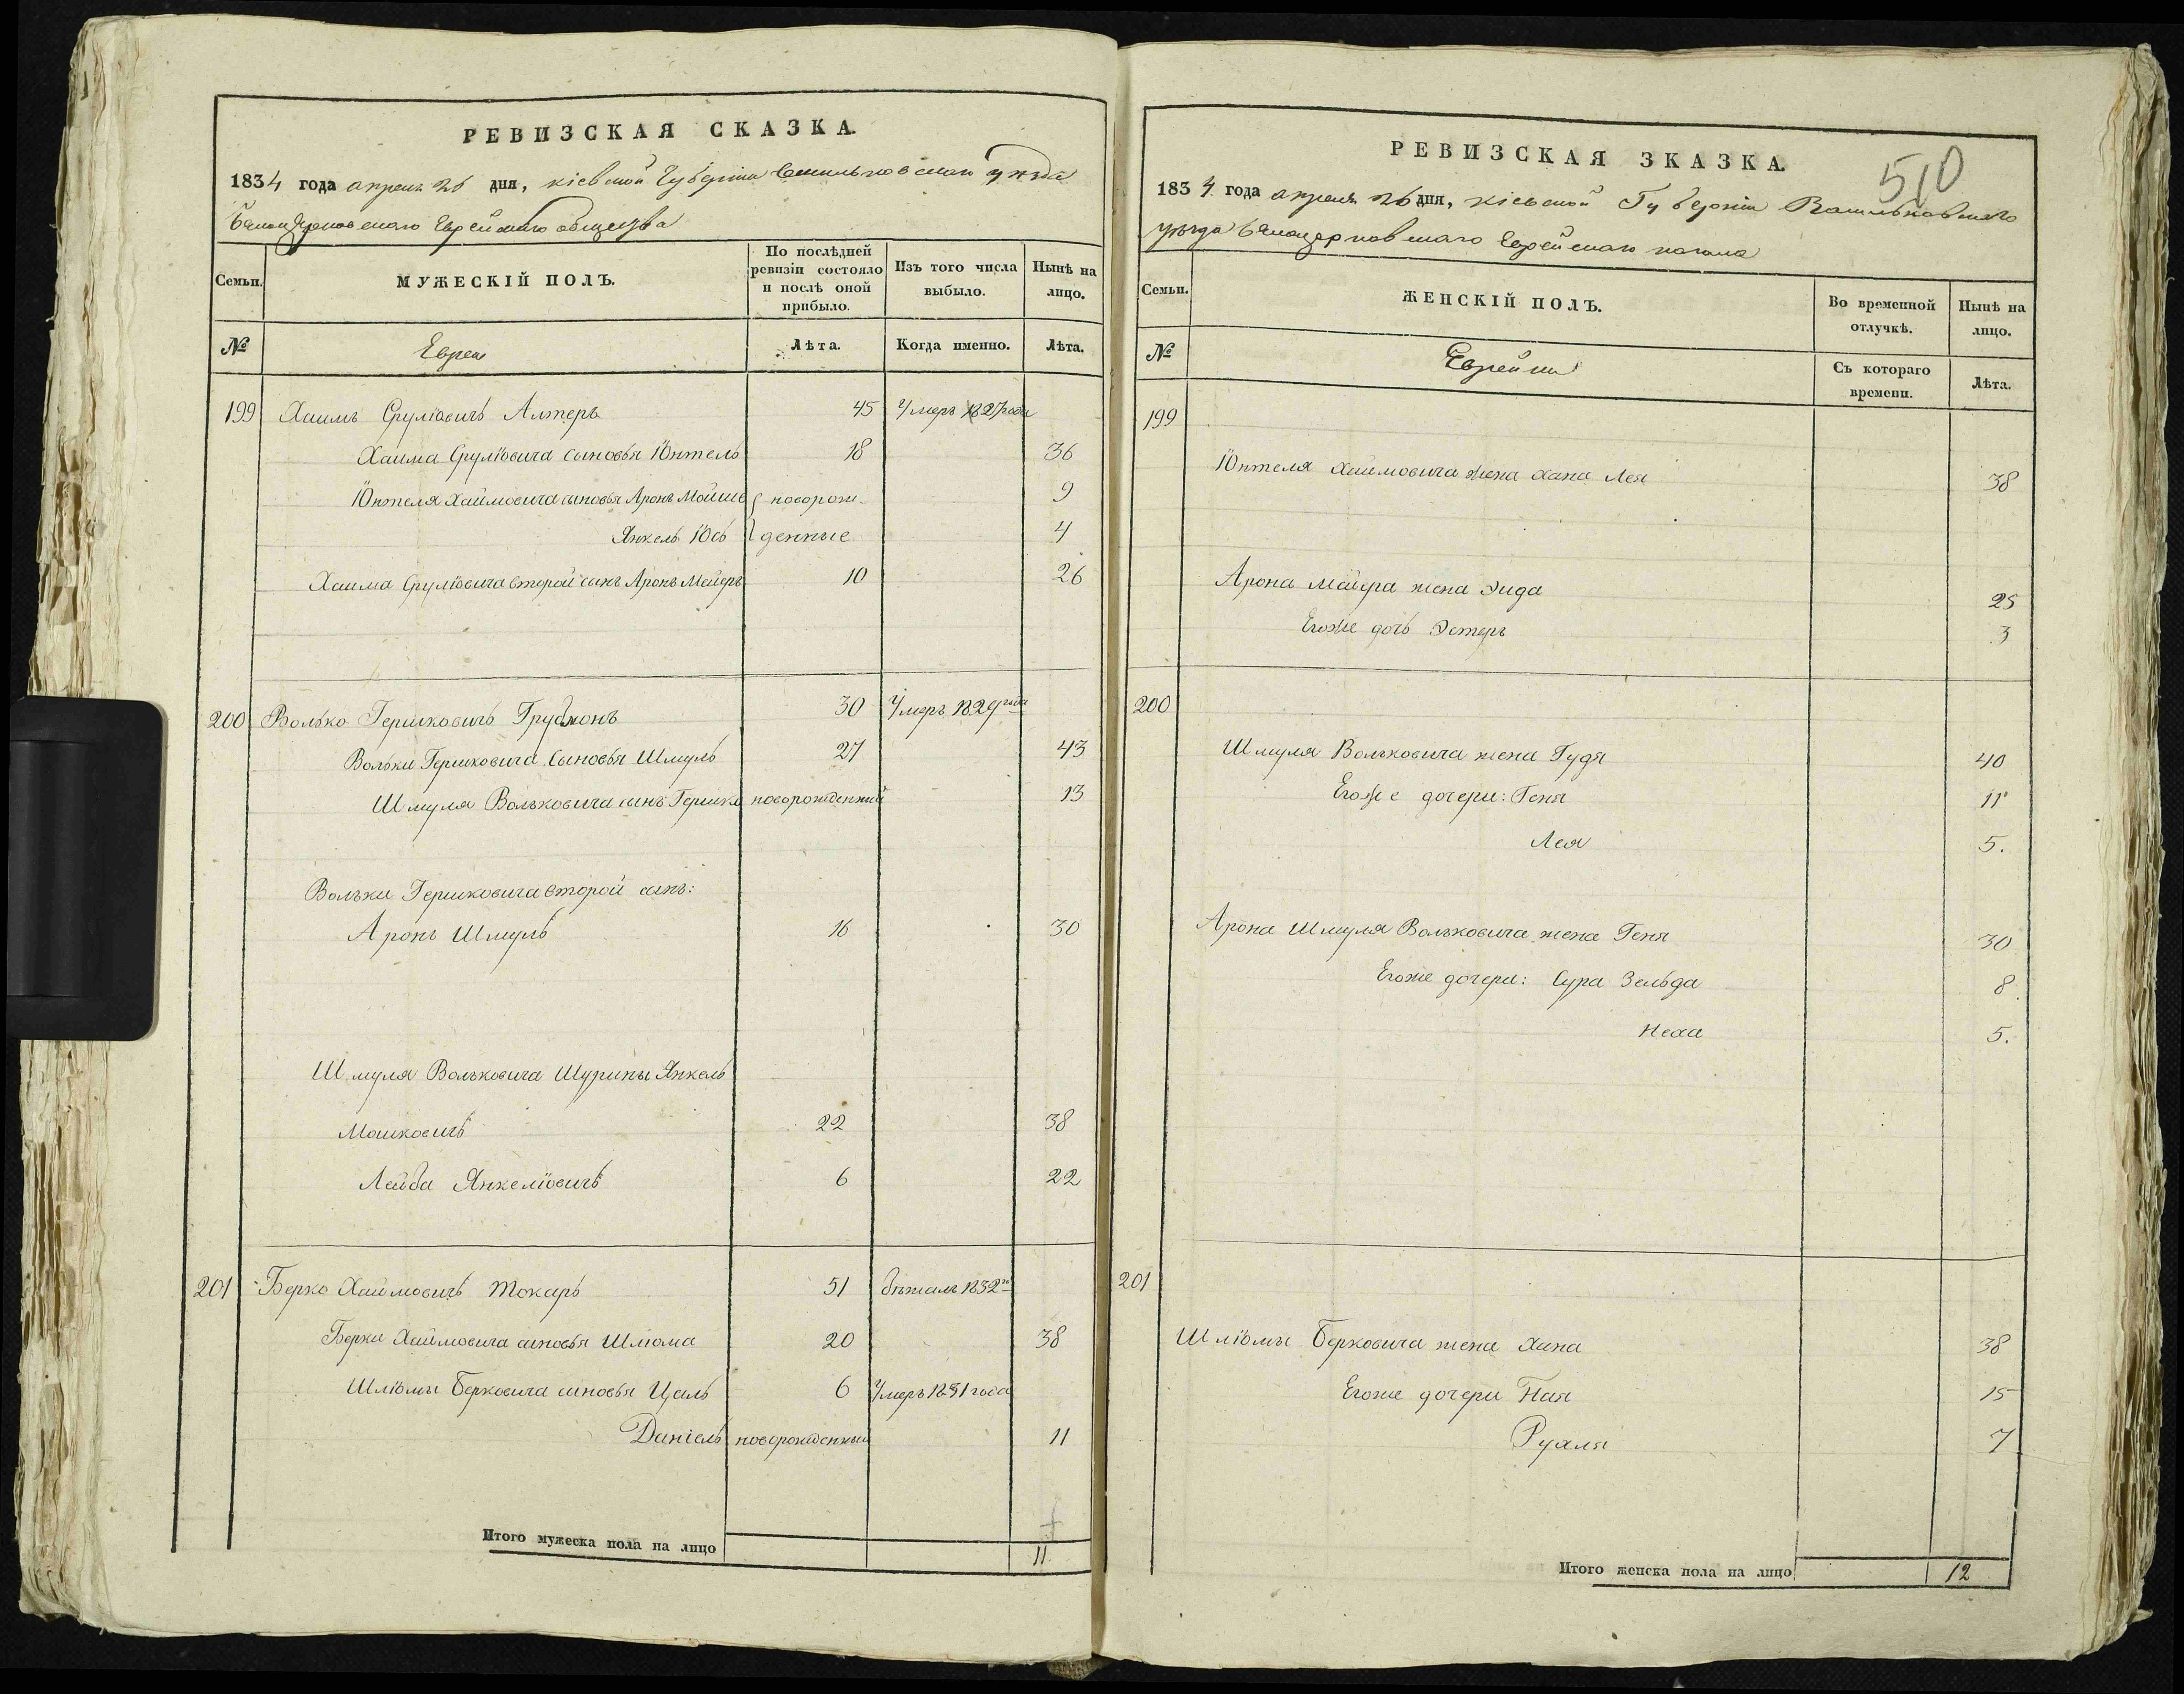 РЕВИЗСКАЯ СКАЗКА.
1834 года апреля 26 дня, кіевской Губерніи Васильковскаго уѣзда
Бѣлоцерковскаго Еврейскаго общества
Семьи.
МУЖЕСКІЙ ПОЛЪ.
По послѣдней ревизіи состояло и послѣ оной прибыло.
Изъ того числа выбыло.
Нынѣ на лицо.
№
Евреи
Лѣта.
Когда именно.
Лѣта.
199 Хаимъ Сруліовичъ Алтеръ 45 Умеръ 1827 года
Хаима Сруліовича сыновья Юнтель 18 36
Юнтеля Хаймовича сыновья Аронъ Мойше новорож- 9
Янкель Іось денные 4
Хаима Сруліовича второй сынъ Аронъ Майеръ 10 26
200 Волько Гершковичъ 30 Умеръ 1829 года
Вольки Гершковича Сыновья Шмуль 27 43
Шмуля Вольковича сынъ Гершко новорожденный 13
Вольки Гершковича второй сынъ:
Аронъ Шмуль 16 30
Шмуля Вольковича Шурины Янкель
Мошковичъ 22 38
Лейба Янкеліовичъ 6 22
201 Берко Хаймовичъ Токарь 51 бѣжалъ 1832 го
Берки Хаймовича сыновья Шлюма 20 38
Шліомы Берковича сыновья Цаль 6 Умеръ 1831 года
Даніель новорожденный 11
Итого мужеска пола на лицо 11
510
РЕВИЗСКАЯ ЗКАЗКА.
1834 года апреля 26 дня, кіевской Губерніи Васильковскаго
уѣзда Бѣлоцерковскаго Еврейскаго кагала
Семьи.
ЖЕНСКІЙ ПОЛЪ.
Во временной отлучкѣ.
Нынѣ на лицо.
№
Еврейки
Съ котораго времени.
Лѣта.
199
Юнтеля Хаймовича жена Хана Лея 38
Арона Майера жена Эида 25
Егоже дочь Эстеръ 3
200
Шмуля Вольковича жена Гудя 40
Егоже дочери: Геня 11
Лея 5.
Арона Шмуля Вольковича жена Геня 30
Егоже дочери: Сура Зельда 8.
Неха 5.
201
Шліомы Берковича жена Хана 38
Егоже дочери Ная 15
Рухля 7
Итого женска пола на лицо 12